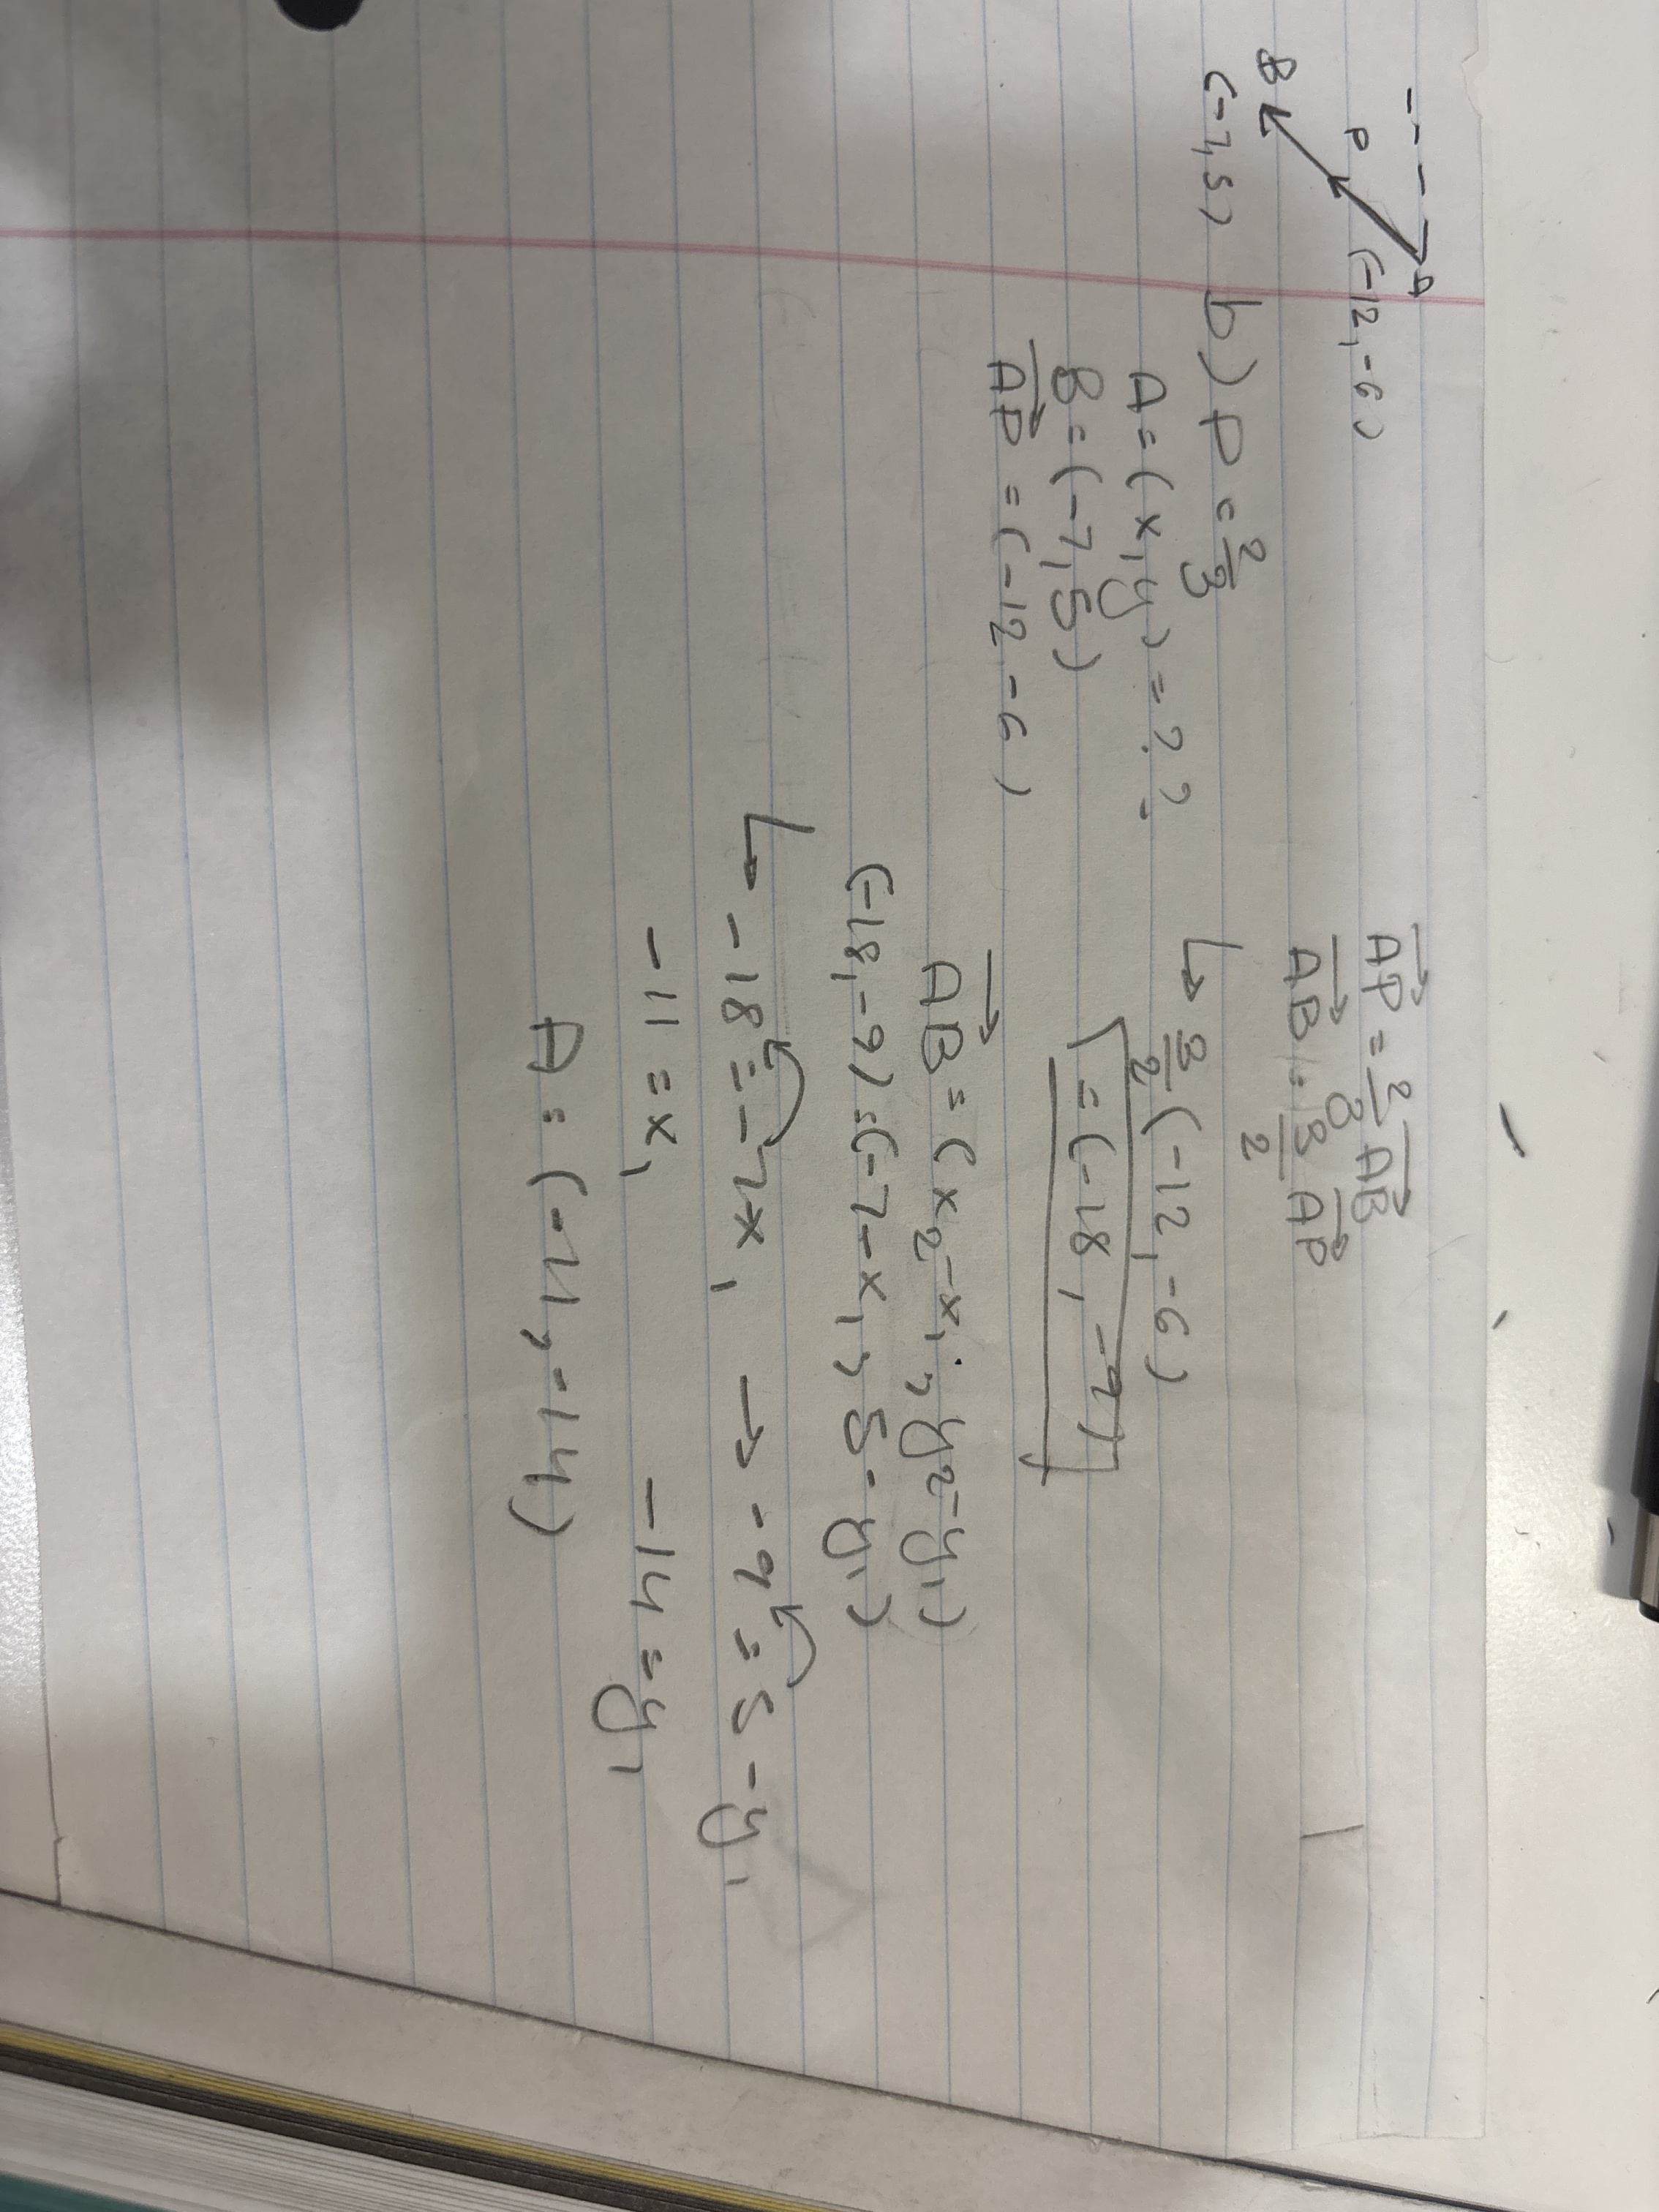 A
(-12, -6)
P
B
(-7, 5)
b) P = 2/3
A = (x, y) = ??
B = (-7, 5)
AP = (-12, -6)
AP = 2/3 AB
AB = 3/2 AP
↳ 3/2 (-12, -6)
= (-18, -9)
AB = (x2 - x1, y2 - y1)
(-18, -9) = (-7 - x1, 5 - y1)
↳ -18 = -7 - x1 → -9 = 5 - y1
-11 = x1 -14 = y1
A: (-11, -14)